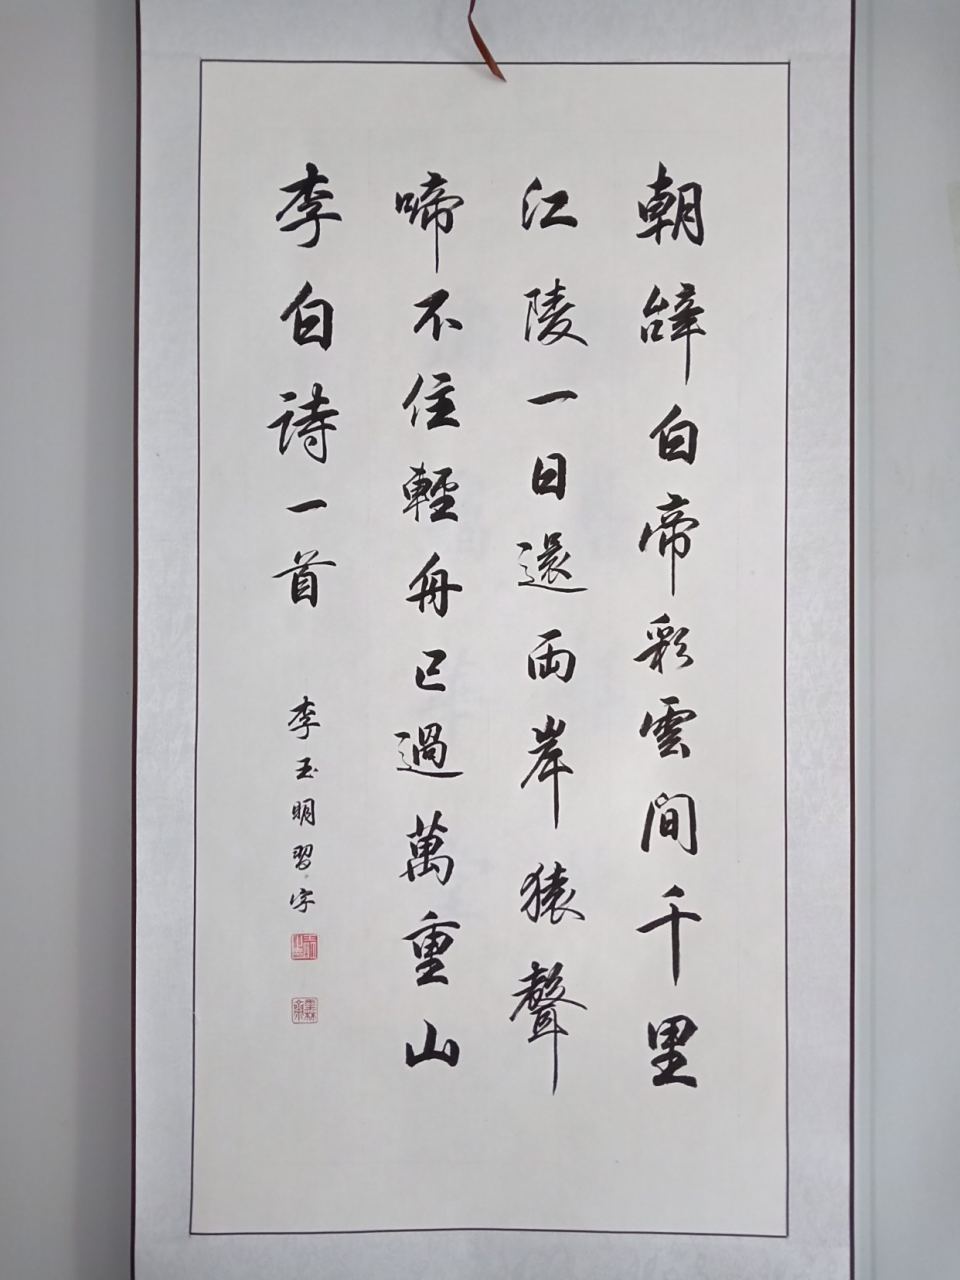 朝辝白帝彩雲間千里
江陵一日還兩岸猿聲
啼不住輕舟已過萬重山
李白詩一首
李玉明習字